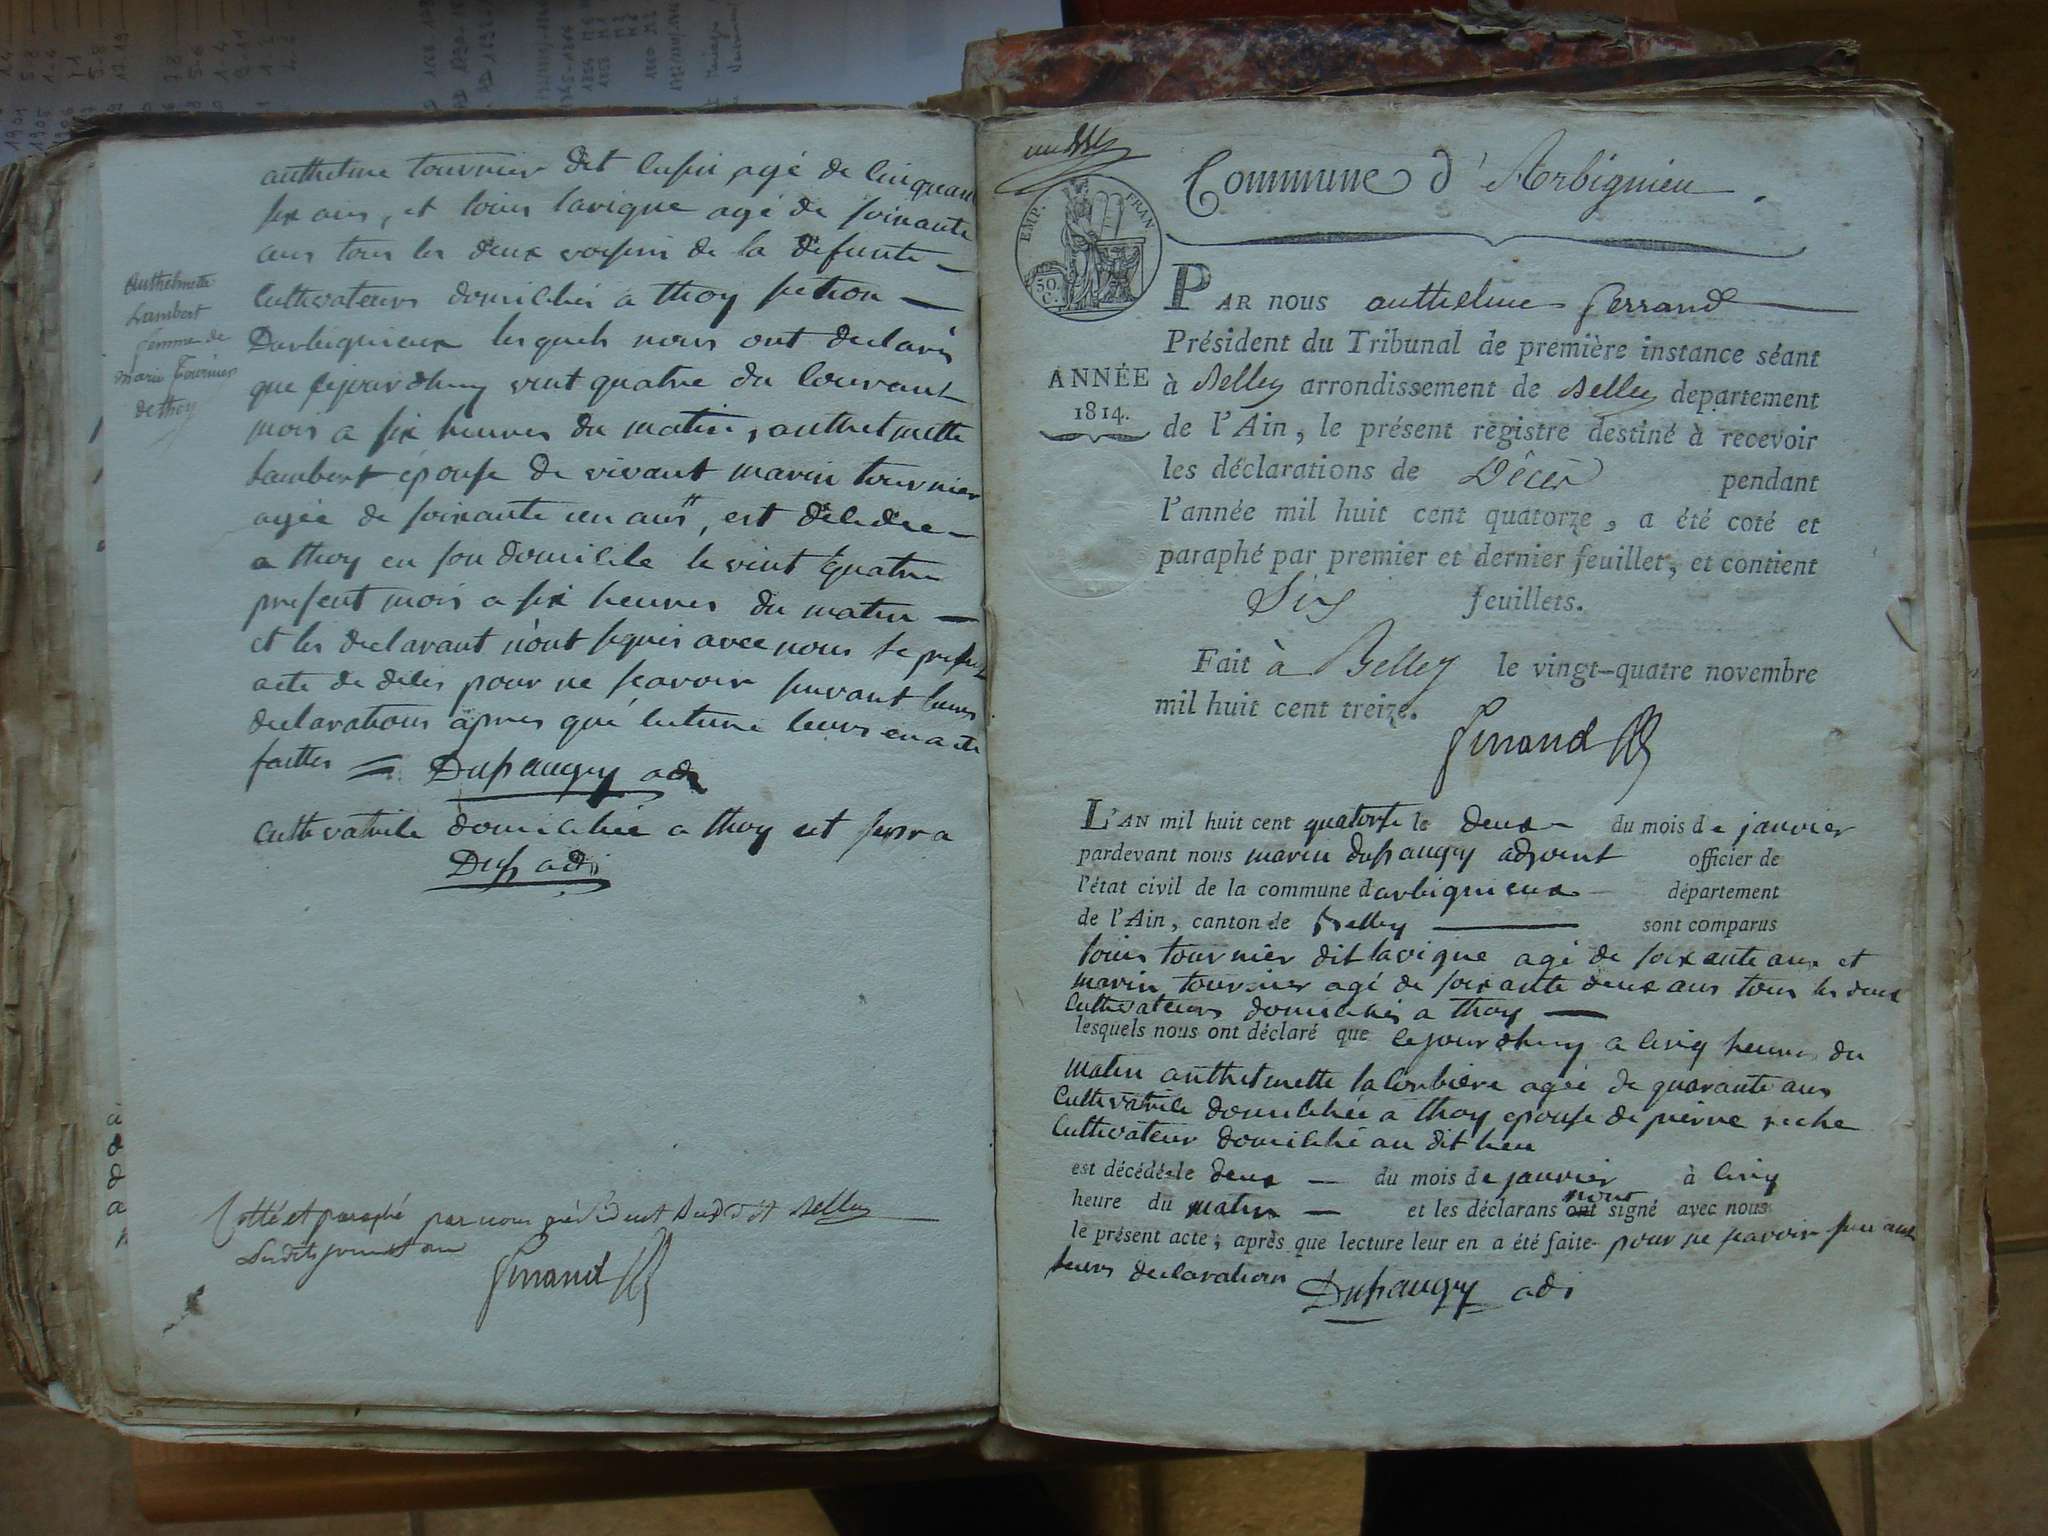 anthelme tournier dit lupin agé de cinquan
six ans, et louis lavigne agé de soixante
ans tous les deux voisins de la defunte
cultivateurs domiciliés a thoy section
Darbignieux lesquels nous ont declarés
que cejourdhuy vint quatre du courant
mois a six heures du matin, anthelmette
Lambert épouse de vivant marin tournier
agée de soixante un ans, est décédée
a thoy en son domicile le vint quatre
present mois a six heures du matin
et les declarant n'ont signés avec nous le present
acte de décès pour ne scavoir suivant leurs
declarations apres que lecture leurs en a été
faittes Dupaugey adj
cultivatrice domiciliée a thoy
Dup adj
Anthelmette
Lambert
femme de
marin Tournier
de thoy
Cotté et paraphé par nous président Belley
Ferrand
Commune d'Arbignieu
EMP. FRAN
50 C.
ANNÉE
1814.
PAR NOUS anthelme ferrand
Président du Tribunal de première instance séant
à Belley arrondissement de Belley departement
de l'Ain, le présent registre destiné à recevoir
les déclarations de Décès pendant
l'année mil huit cent quatorze, a été coté et
paraphé par premier et dernier feuillet, et contient
Six feuillets.
Fait à Belley le vingt-quatre novembre
mil huit cent treize.
Ferrand
L'AN mil huit cent quatorse le deux du mois de janvier
pardevant nous marin dupaugey adjoint officier de
l'état civil de la commune darbignieux département
de l'Ain, canton de Belley sont comparus
louis tournier dit lavigne agé de soixante ans et
marin tournier agé de soixante deux ans tous les deux
cultivateurs domiciliés a thoy
lesquels nous ont déclaré que cejourdhuy a cinq heures du
matin anthelmette lacorbiere agée de quarante ans
cultivatrice domiciliée a thoy epouse de pierre reche
cultivateur domicilié au dit lieu
est décédée le deux du mois de janvier à cinq
heure du matin et les déclarans nont signé avec nous
le présent acte, après que lecture leur en a été faite pour ne scavoir suivant
leurs declarations Dupaugey adj